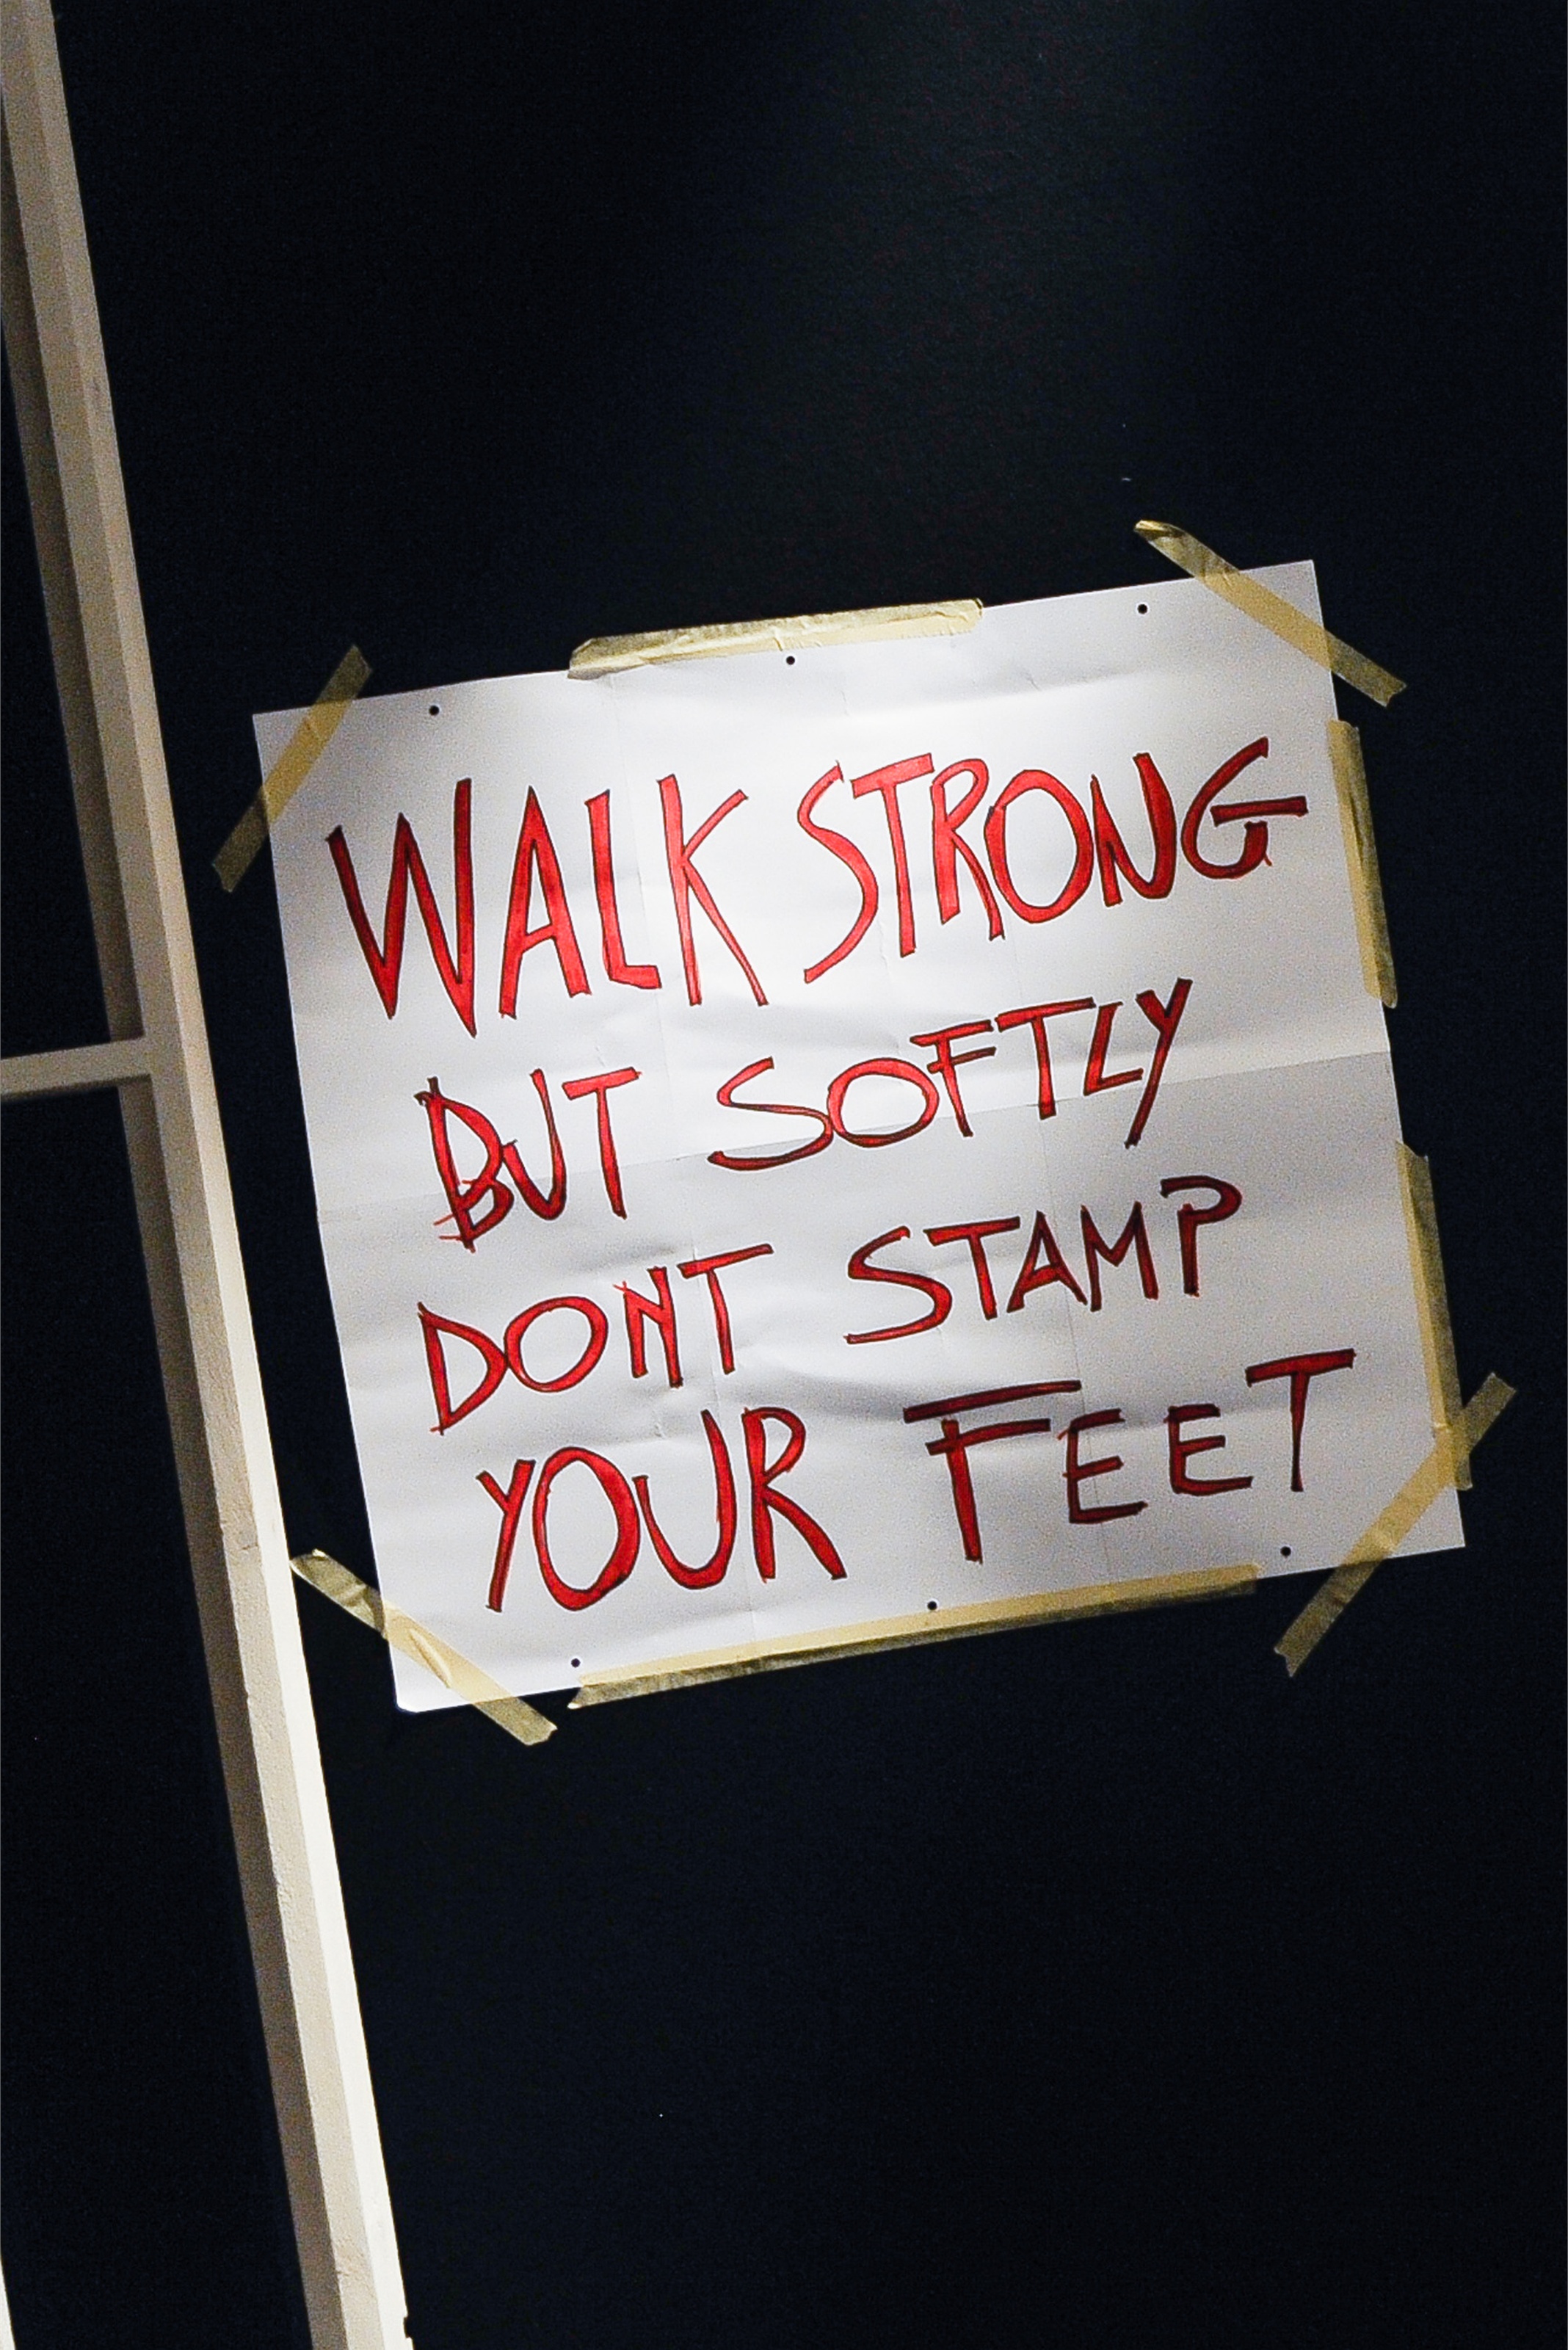 WALK STRONG
BUT SOFTLY
DONT STAMP
YOUR FEET